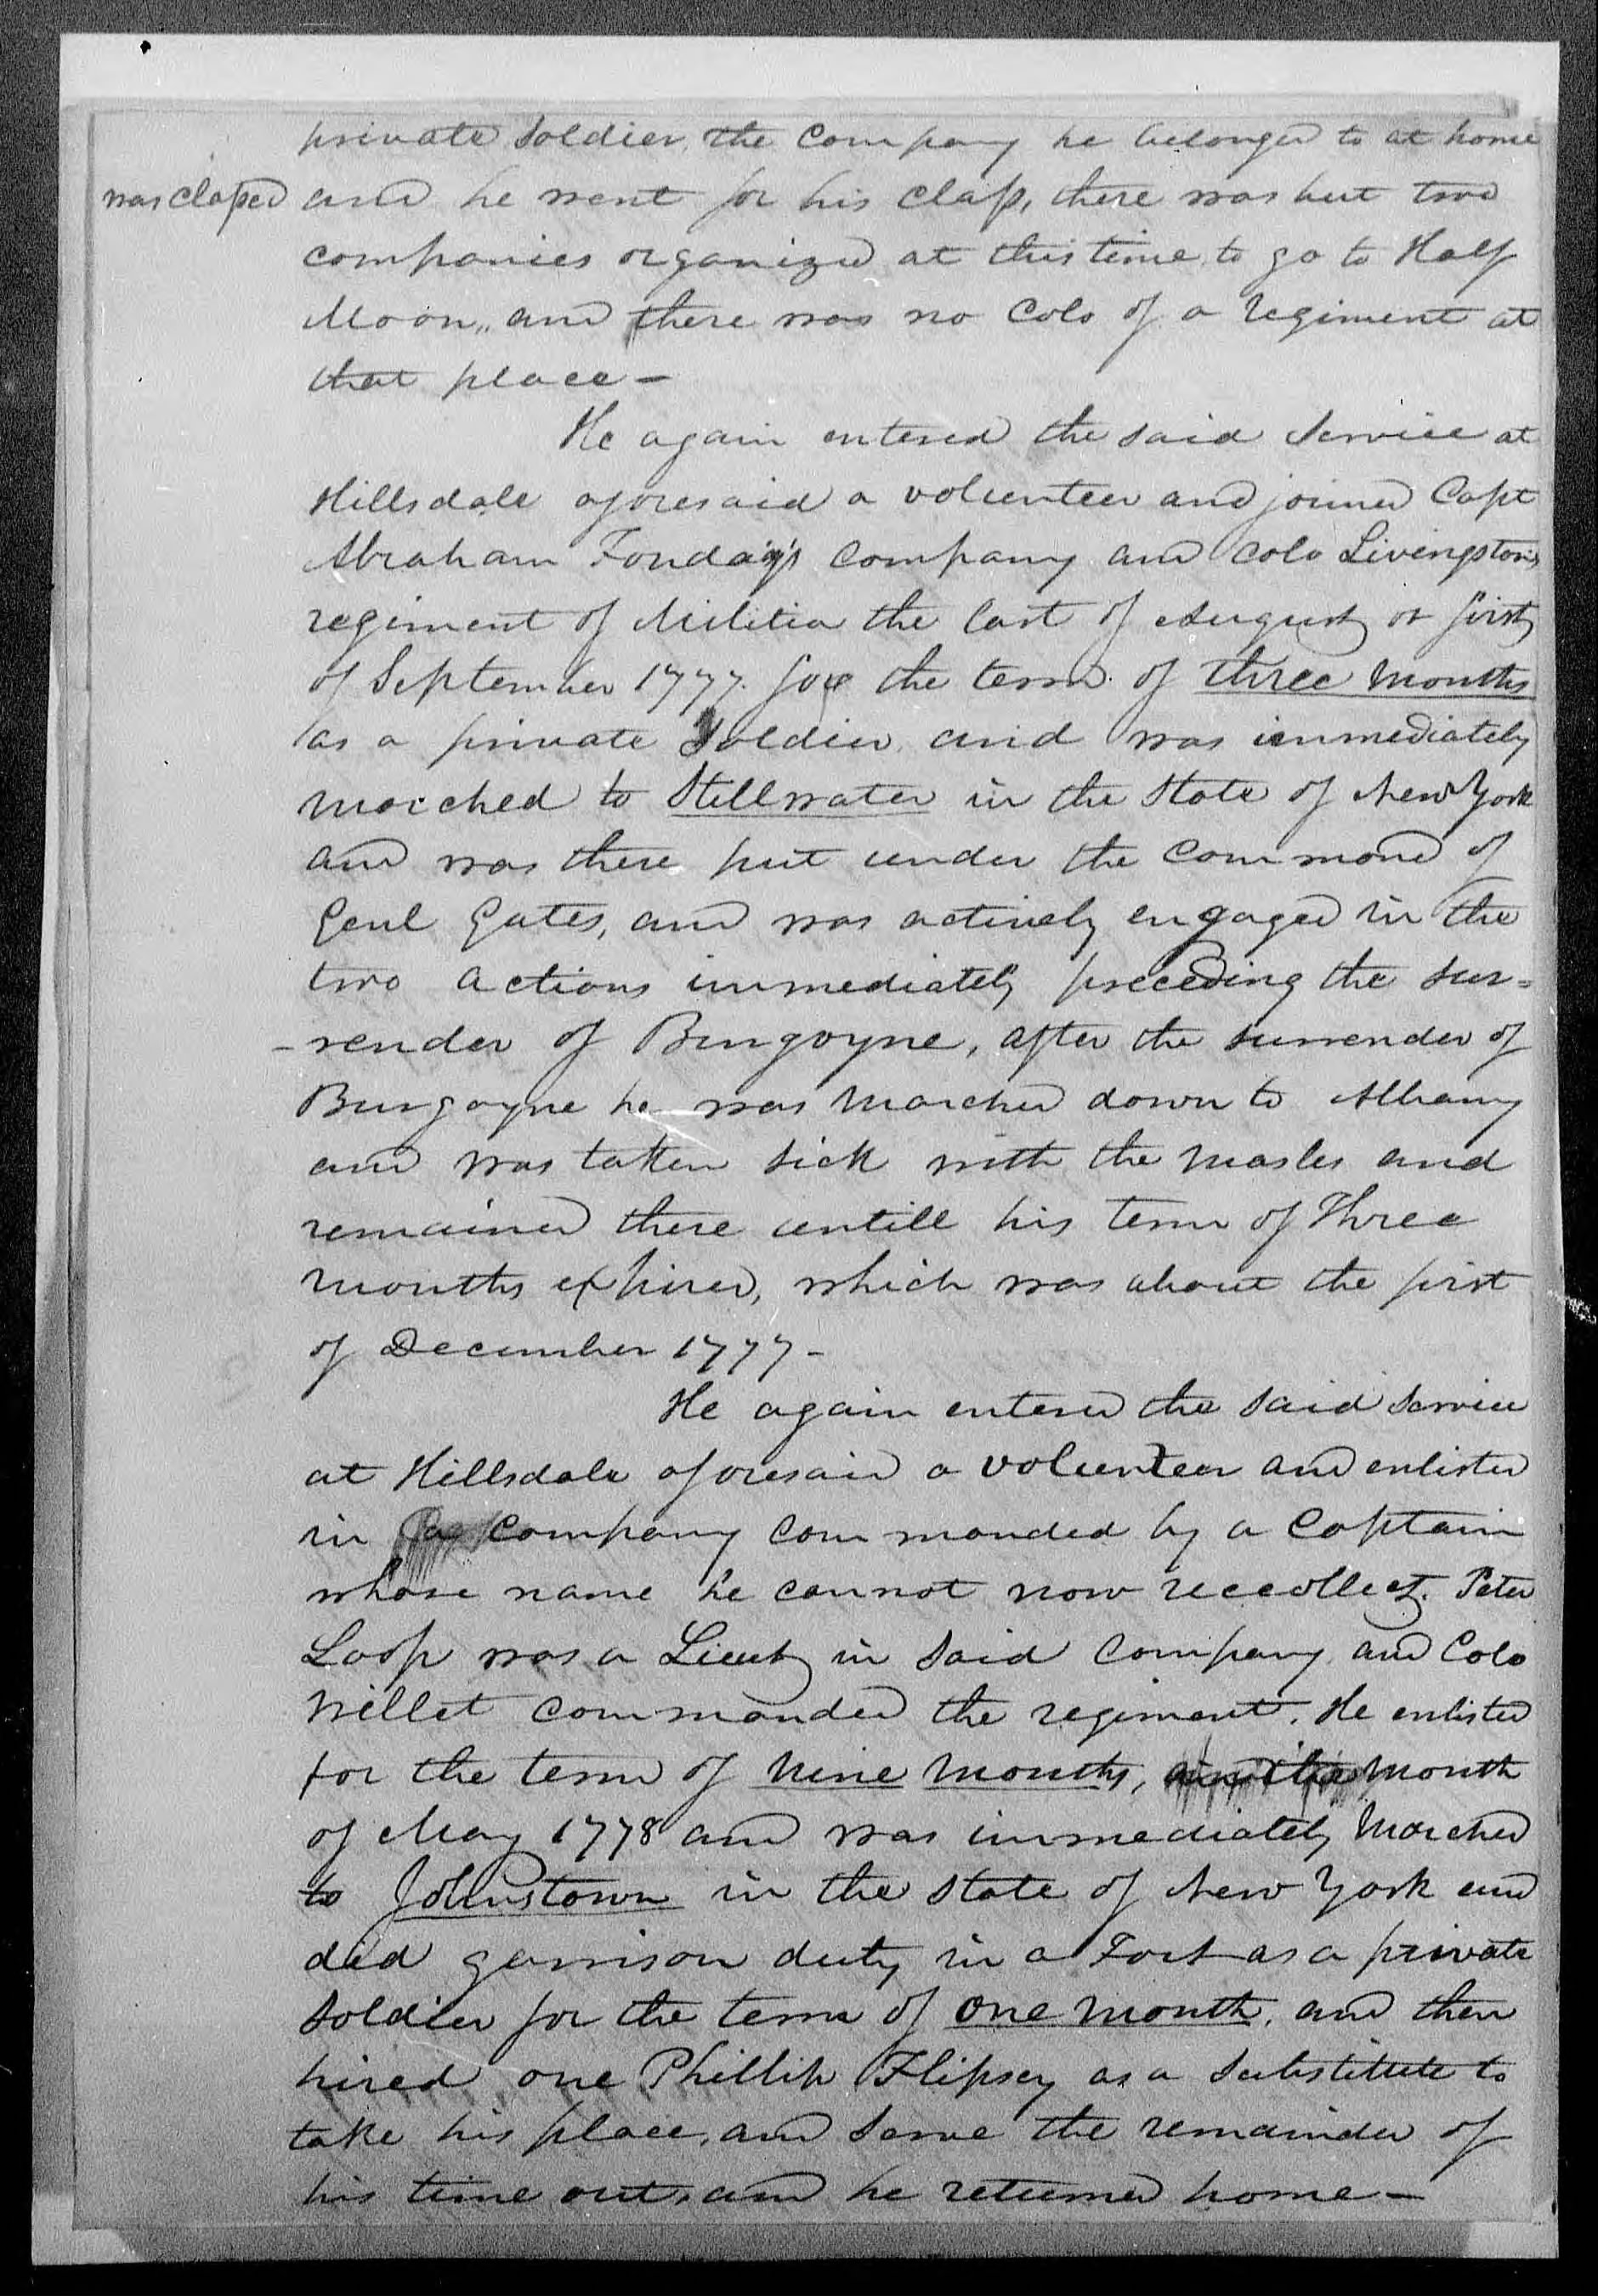 private soldier, the Company he belonged to at home
was classed and he went for his class, there was but two
companies organized at this time to go to Half
Moon, and there was no Colo of a regiment at
that place —
He again entered the said service at
Hillsdale aforesaid a volunteer and joined Capt
Abraham Fonday's company and Colo Livingston's
regiment of Militia the last of August or first
of September 1777. for the term of three months
as a private soldier and was immediately
marched to Stillwater in the State of New York
and was there put under the command of
Genl Gates, and was actively engaged in the
two actions immediately preceding the sur=
-render of Burgoyne, after the surrender of
Burgoyne he was marched down to Albany
and was taken sick with the masles and
remained there untill his term of Three
months expired, which was about the first
of December 1777 -
He again entered the said service
at Hillsdale aforesaid a volunteer and enlisted
in a company commanded by a Captain
whose name he cannot now reccollect. Peter
Loop was a Lieut in said company and Colo
Willet commanded the regiment. He enlisted
for the term of nine months, month
of May 1778 and was immediately marched
to Johnstown in the State of New York and
did garrison duty in a Fort as a private
soldier for the term of one month, and then
hired one Phillip Flipsey as a substitute to
take his place, and serve the remainder of
his time out, and he returned home —